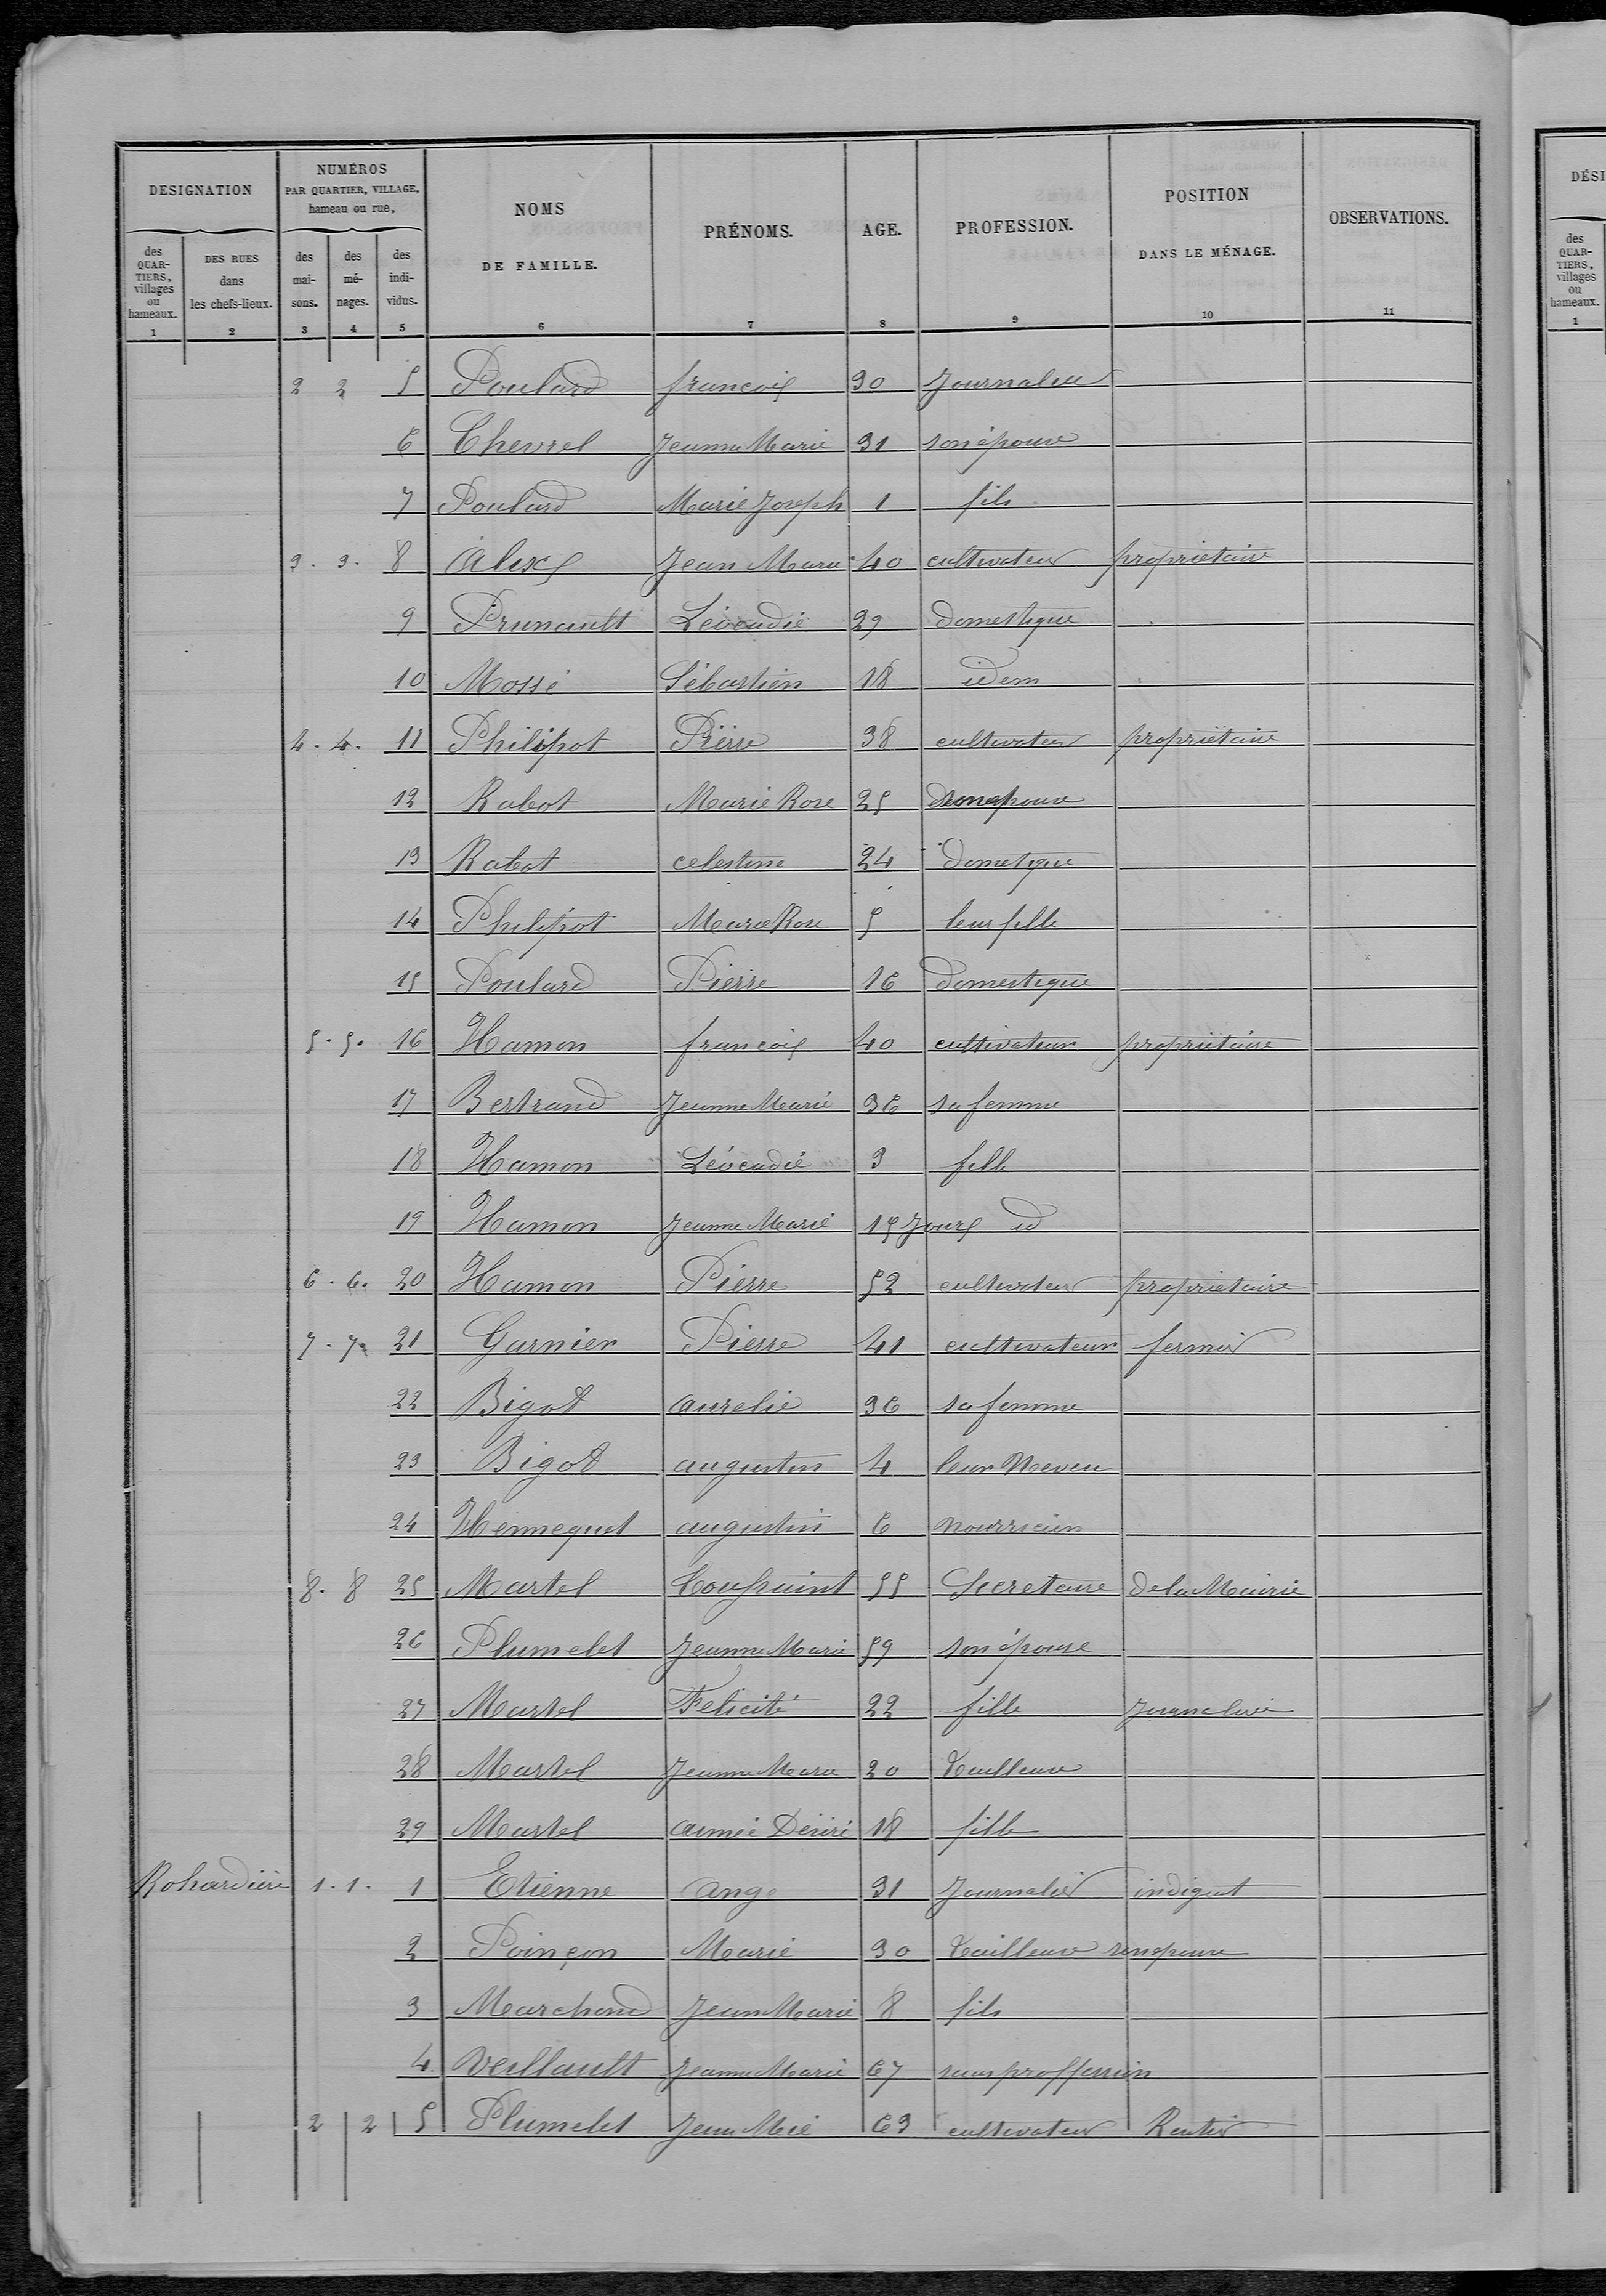 DESIGNATION NUMÉROS PAR QUARTIER, VILLAGE, hameau ou rue, NOMS DE FAMILLE. PRÉNOMS. AGE. PROFESSION. POSITION DANS LE MÉNAGE. OBSERVATIONS.
des QUAR-TIERS, villages ou hameaux. DES RUES dans les chefs-lieux. des mai-sons. des mé-nages. des indi-vidus.
1 2 3 4 5 6 7 8 9 10 11
2 2 5 Poulard francois 30 Journalier
6 Chevrel Jeanne Marie 31 son épouse
7 Poulard Marie Joseph 1 fils
3. 3. 8 Alix Jean Marie 40 cultivateur propriétaire
9 Prunault Léocadie 29 domestique
10 Mossé Sébastien 18 idem
4. 4. 11 Philipot Pierre 38 cultivateur propriétaire
12 Rabot Marie Rose 25 son epouse
13 Rabot celestine 24 dometique
14 Philipot Marie Rose 5 leur fille
15 Poulard Pierre 16 domestique
5. 5. 16 Hamon francois 40 cultivateur propriétaire
17 Bertrand Jeanne Marie 36 sa femme
18 Hamon Léocadie 3 fille
19 Hamon Jeanne Marie 15 Jours id
6. 6. 20 Hamon Pierre 52 cultivateur propriétaire
7. 7. 21 Garnier Pierre 41 cultivateur fermier
22 Bigot aurelie 36 sa femme
23 Bigot augustin 4 leur Neveu
24 Hennequet augustin 6 Nourricien
8. 8 25 Martel Toussaint 55 Secretaire de la Mairie
26 Plumelet Jeanne Marie 59 son épouse
27 Martel Felicité 22 fille Journaliere
28 Martel Jeanne Marie 20 tailleuse
29 Martel aimée Désiré 18 fille
Rohardiere 1. 1. 1 Etienne Ange 31 Journalier indigent
2 Poinçon Marie 30 tailleuse son epouse
3 Marchand Jean Marie 8 fils
4. Veillault Jeanne Marie 67 sans proffession
2 2 5 Plumelet Jean Mie 63 cultivateur Rentier
DÉSI
des QUAR-TIERS, villages ou hameaux.
1